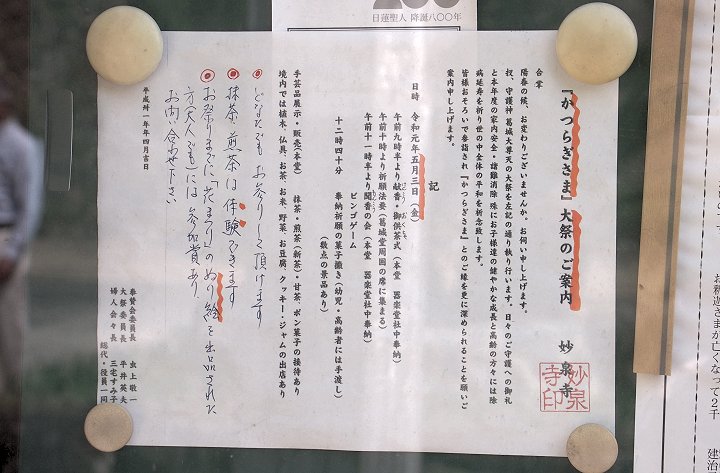 日蓮聖人 降誕八〇〇年
『かつらぎさま』大祭のご案内
妙泉寺
妙泉寺印
合掌
陽春の候、お変わりございませんか。お伺い申し上げます。
扨、守護神 葛城大尊天の大祭を左記の通り執り行います。日々のご守護への御礼
と本年度の家内安全・諸難消除 殊にお子様達の健やかな成長と高齢の方々には除
病延寿を祈り世の中全体の平和を祈念致します。
皆様おそろいで参詣され『かつらぎさま』とのご縁を更に深められることを願いご
案内申し上げます。
記
日時 令和元年五月三日（金）
午前九時半より献香・御供茶式（本堂 器楽堂社中奉納）
午前十時より祈願法要（葛城堂周囲の席に集まる）
午前十一時半より聞香の会（本堂 器楽堂社中奉納）
ビンゴゲーム
十二時四十分 奉納祈願の菓子撒き（幼児・高齢者には手渡し）
（数点の景品あり）
手芸品展示・販売（本堂） 抹茶・煎茶（新茶）・甘茶、ポン菓子の接待あり
境内では植木、仏具、お茶、お米、野菜、お豆腐、クッキー・ジャムの出店あり
◉どなたでもお参りして頂けます
◉抹茶、煎茶は体験できます
◉お祭りまでに「花まつり」のぬり絵を出品された
方（大人でも）には参加賞あり
お問い合わせ下さい
奉賛会委員長 虫上敬一
大祭委員長 平井英夫
婦人会々長 三宅すみ子
総代・役員一同
平成卅一年年四月吉日
お釈迦さまが亡くなって2千
建治